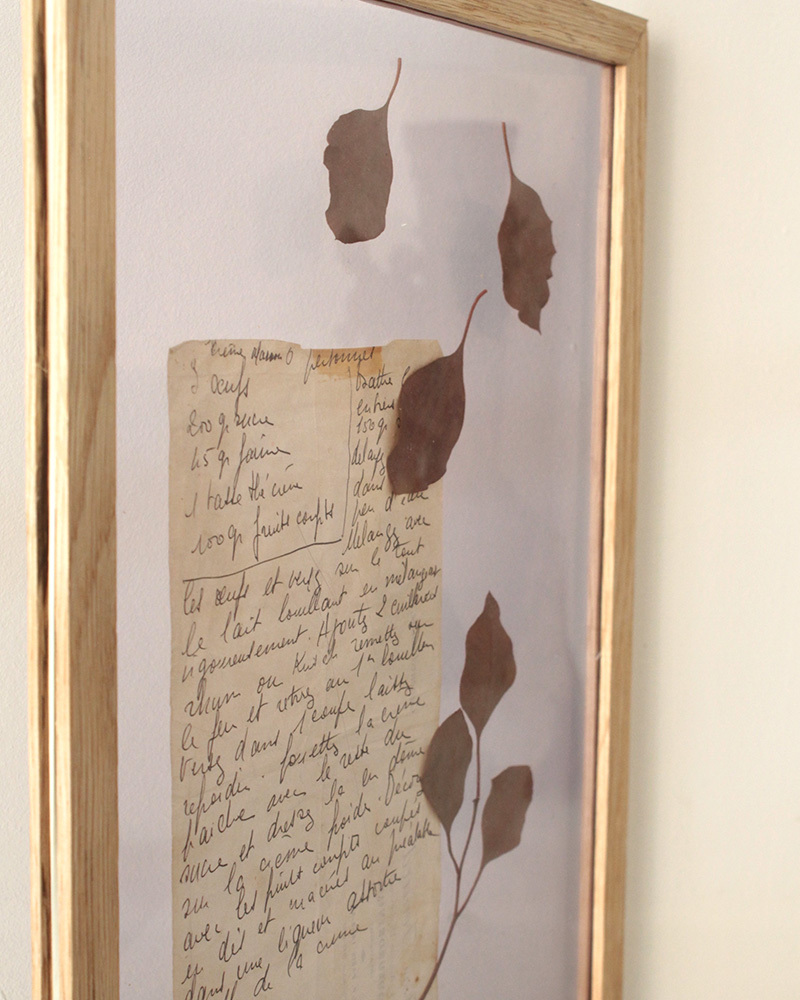 Crème Maison 6 personnes
3 œufs
200 gr sucre
45 gr farine
1 tasse thé crème
100 gr fruits confits
Battre
entiers
150 gr
Mélange
dans
peu d'eau
Mélangez avec
les œufs et versez sur le tout
le lait bouillant en mélangeant
vigoureusement. Ajoutez 2 cuillères
rhum ou Kirsch remettez sur
le feu et retirez au 1er bouillon
Versez dans 1 coupe laissez
refroidir. fouettez la crème
fraîche avec le reste du
sucre et dressez la en dôme
sur la crème froide. Décorez
avec les fruits confits coupés
en dés et macérés au préalable
dans une liqueur assortie
de la crème